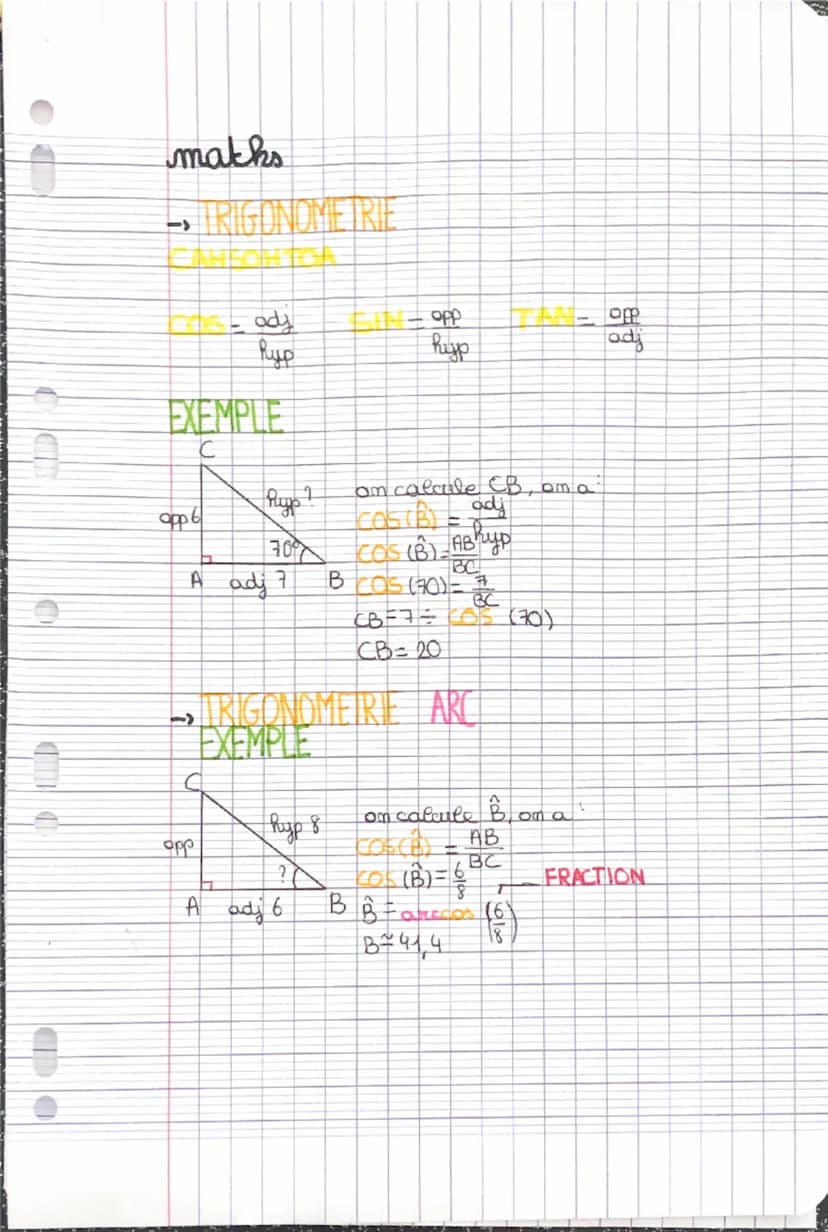 maths
→ TRIGONOMETRIE
CAHSOHTOA
COS = adj/hyp SIN = opp/hyp TAN = opp/adj
EXEMPLE
C
hyp ?
opp 6
70°
A adj 7 B
on calcule CB, on a :
COS(B̂) = adj/hyp
COS (B̂) = AB/BC
COS (70) = 7/BC
CB = 7 ÷ COS (70)
CB = 20
→ TRIGONOMETRIE ARC
EXEMPLE
C
hyp 8
opp
?
A adj 6 B
on calcule B̂, on a :
COS(B̂) = AB/BC
COS (B̂) = 6/8
FRACTION
B̂ = arccos (6/8)
B ≃ 41,4